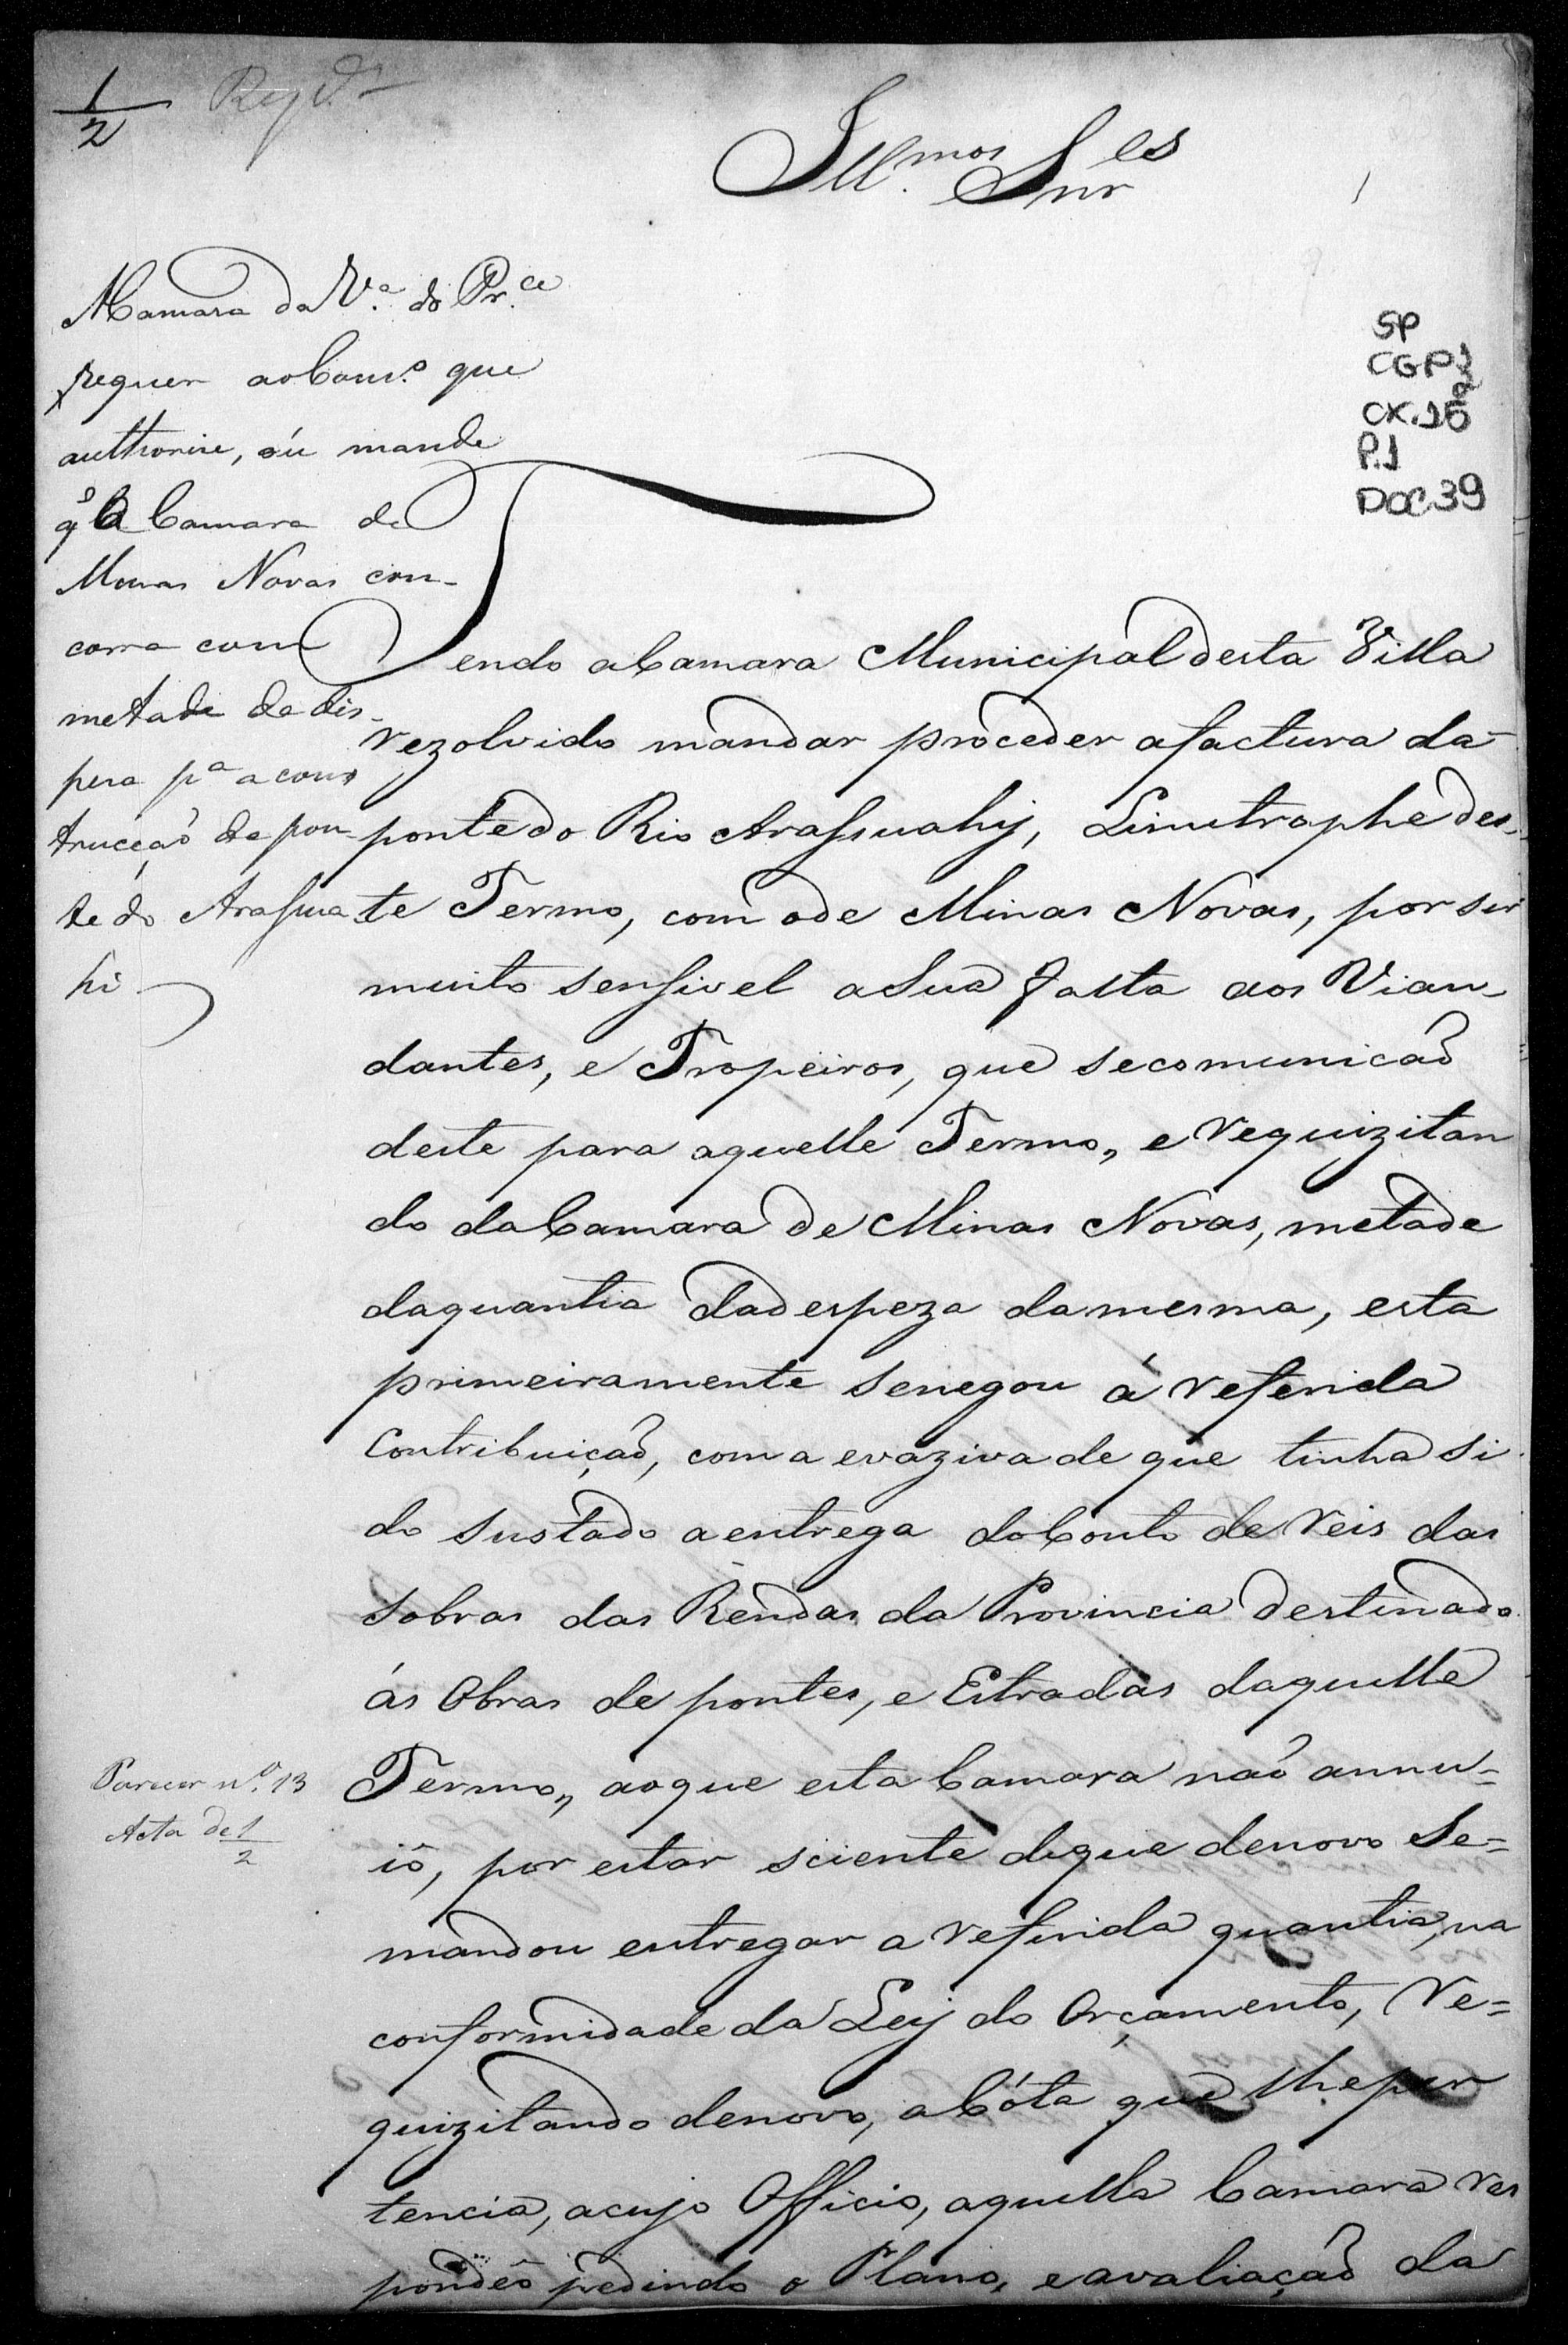 1/2
Ill.mos Snr.es
SP
CGP1
CX.16
P.1
DOC 39
A Camara da V.a do Pr.ce
requer ao Cons.o que
authorise, óu mande
q̃ a Camara de
Minas Novas con-
corra com
metade da dis-
peza p.a a cons
trucçaõ da pon-
te do Arassua
hi
Tendo a Camara Municipal desta Villa
rezolvido mandar proceder a factura da
ponte do Rio Arassuahÿ, Limitrophe des-
te Termo, com o de Minas Novas, por ser
muito sensivel a Sua falta aos Vian-
dantes, e Tropeiros, que se comunicaõ
deste para aquelle Termo,, e requizitan
do da Camara de Minas Novas, metade
da quantia da despeza da mesma, esta
primeiramente se negou á referida
Contribuiçaõ, com a evaziva de que tinha si
do sustado a entrega do Conto de reis das
sobras das Rendas da Provincia destinado
ás Obras de pontes, e Estradas daquelle
Termo,, ao que esta Camara naõ annu=
iô, por estar sciente de que de novo se=
mandou entregar a referida quantia, na
conformidade da Leÿ do Orçamento, Re=
quizitando de novo, a Cóta que lhe per
tencia, a cujo Officio, aquella Camara res
pondêo pedindo o Plano, e avaliaçaõ da
Parecer n.o 13
Acta de 1/2